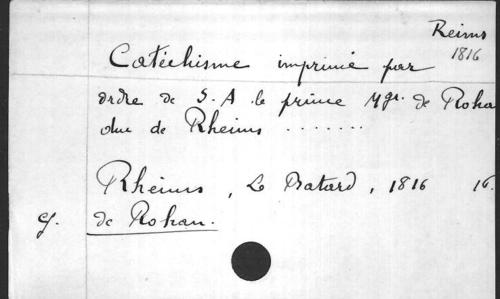 Reims
1816
Catéchisme imprimé par
ordre de S. A. le prince Mgr. de Roha
duc de Rheims .......
Rheims, Le Batard, 1816 16.
cf. de Rohan.